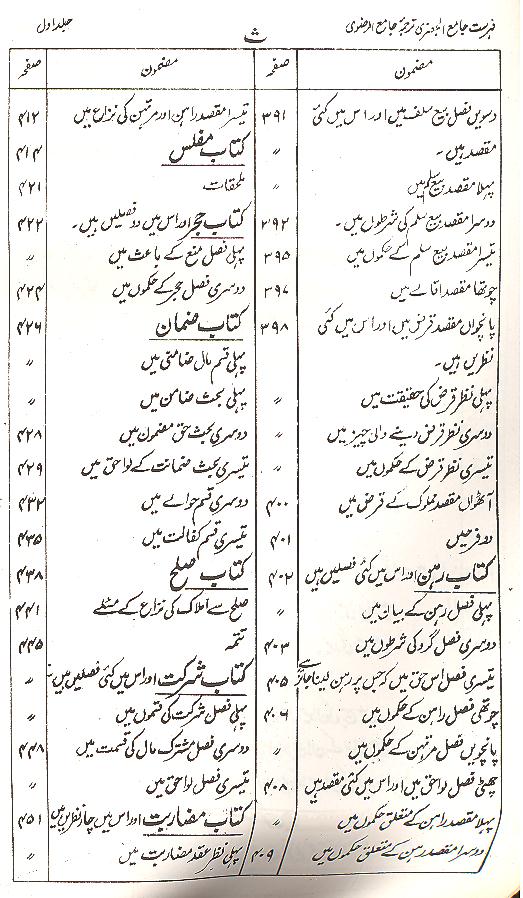 فہرست جامع الجعفری ترجمۂ جامع الرضوی
ث
جلد اول
مضمون
صفحہ
دسویں فصل بیع سلف میں اور اس میں کئی
۳۹۱
مقصد ہیں۔
〃
پہلا مقصد بیع سلم میں
〃
دوسرا مقصد بیع سلم کی شرطوں میں۔
۳۹۲
تیسرا مقصد بیع سلم کے حکموں میں
۳۹۵
چوتھا مقصد اقالے میں
۳۹۷
پانچواں مقصد قرض میں اور اس میں کئی
۳۹۸
نظریں ہیں۔
پہلی نظر قرض کی حقیقت میں
〃
دوسری نظر قرض دینے والی چیز میں
〃
تیسری نظر قرض کے حکموں میں
〃
آٹھواں مقصد مملوک کے قرض میں
۴۰۰
دو فرعیں
۴۰۱
کتاب رہن اور اس میں کئی فصلیں ہیں
۴۰۲
پہلی فصل رہن کے بیان میں
〃
دوسری فصل گرو کی شرطوں میں
۴۰۳
تیسری فصل اس حق میں کہ جس پر رہن لینا جائز ہے
۴۰۵
چوتھی فصل راہن کے حکموں میں
۴۰۶
پانچویں فصل مرتہن کے حکموں میں
〃
چھٹی فصل لواحق میں اور اس میں کئی مقصد ہیں
۴۰۸
پہلا مقصد راہن کے متعلق حکموں میں
〃
دوسرا مقصد رہن کے متعلق حکموں میں
۴۰۹
مضمون
صفحہ
تیسرا مقصد راہن اور مرتہن کی نزاع میں
۴۱۲
کتاب مفلس
۴۱۴
ملحقات
۴۲۱
کتاب حجر اور اس میں دو فصلیں ہیں۔
۴۲۲
پہلی فصل منع کے باعث میں
〃
دوسری فصل حجر کے حکموں میں
۴۲۴
کتاب ضمان
۴۲۶
پہلی قسم مال ضامنی میں
〃
پہلی بحث ضامن میں
〃
دوسری بحث حق مضمون میں
۴۲۸
تیسری بحث ضمانت کے لواحق میں
۴۲۹
دوسری قسم حوالے میں
۴۳۲
تیسری قسم کفالت میں
۴۳۵
کتاب صلح
۴۳۸
صلح سے املاک کی نزاع کے مسئلے
۴۴۱
تتمہ
۴۴۵
کتاب شرکت اور اس میں کئی فصلیں ہیں
〃
پہلی فصل شرکت کی قسموں میں
〃
دوسری فصل مشترک مال کی قسمت میں
۴۴۸
تیسری فصل لواحق میں
〃
کتاب مضاربت اور اس میں چار نظریں ہیں
۴۵۱
پہلی نظر عقد مضاربت میں
〃